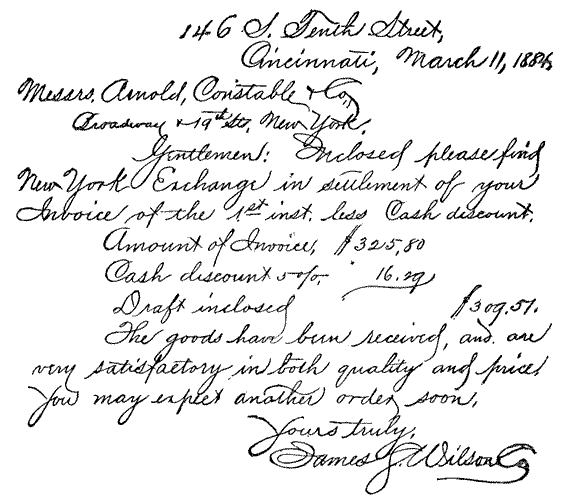 146 S. Tenth Street,
Cincinnati, March 11, 1884,
Messrs. Arnold, Constable & Co.,
Broadway & 19th St., New York.
Gentlemen: Inclosed please find
New York Exchange in settlement of your
Invoice of the 1st inst. less Cash discount.
Amount of Invoice, $325.80
Cash discount 5 o/o, 16.29
Draft inclosed $309.51.
The goods have been received, and are
very satisfactory in both quality and price.
You may expect another order soon.
Yours truly,
James J. Wilson